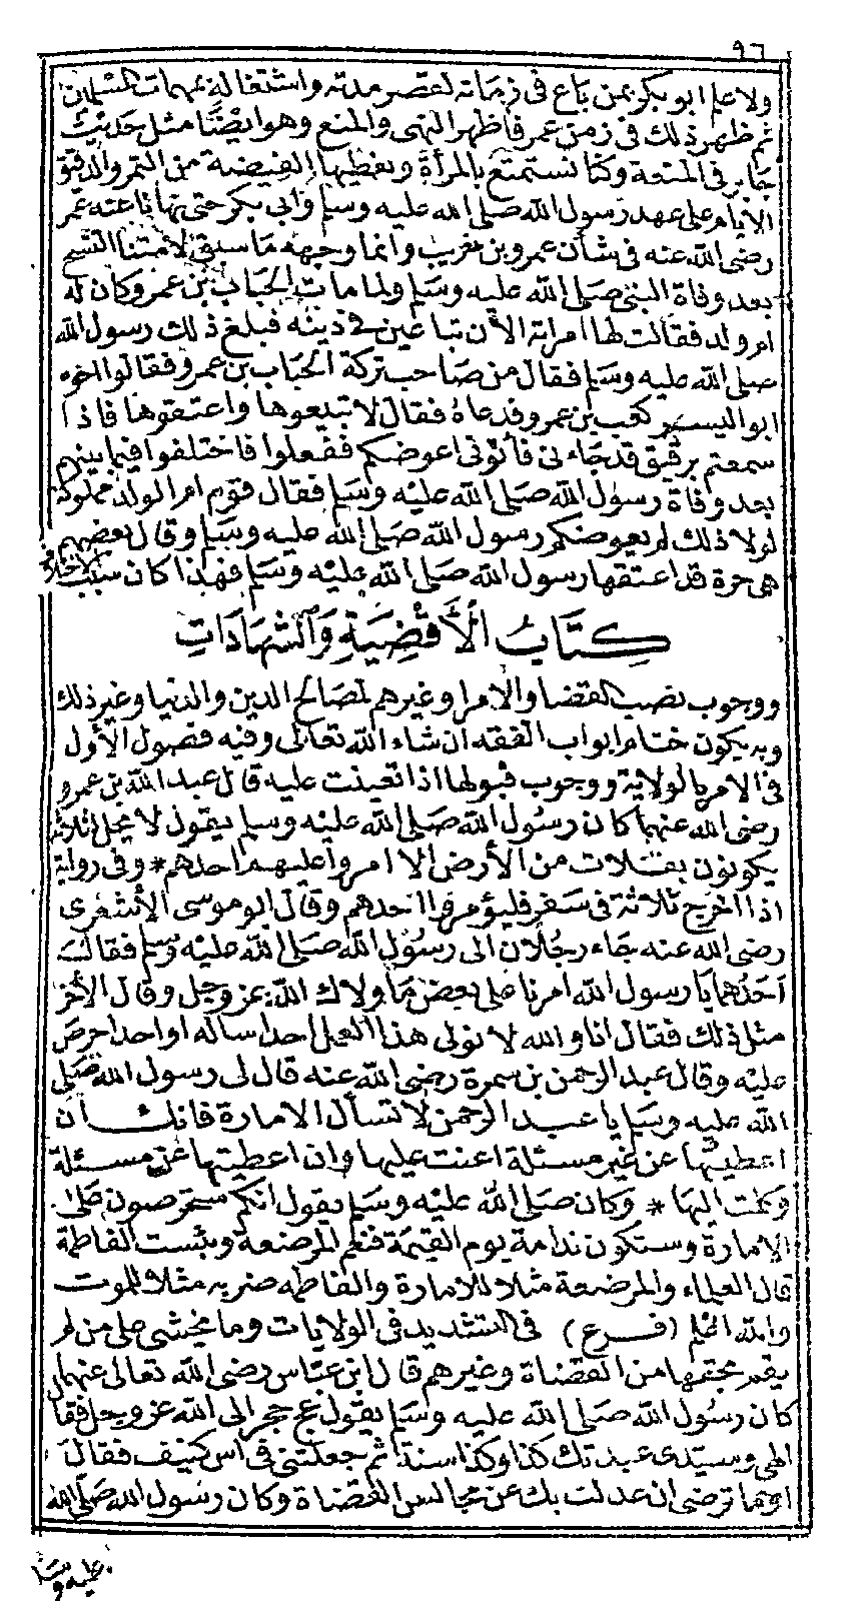 ٩٦
ولا علم ابو بكر بمن باع فى زمانه لقصر مدته واشتغاله بمهمات المسلمين
ثم ظهر ذلك فى زمن عمر فاظهر النهى والمنع وهو ايضًا مثل حديث
جابر فى المتعة وكنا نستمتع بالمرأة ونعطيها القبضة من التمر والدقيق
الايام على عهد رسول الله صلى الله عليه وسلم وابى بكر حتى نهانا عنه عمر
رضى الله عنه فى شأن عمرو بن حريث وانما وجهه ما سبق لامتنا النسخ
بعد وفاة النبى صلى الله عليه وسلم ولما مات الحباب بن عمرو وكان له
ام ولد فقالت لها امراته الأن تباعين فى دينه فبلغ ذلك رسول الله
صلى الله عليه وسلم فقال من صاحب تركة الحباب بن عمرو فقالوا اخوه
ابو اليسر كعب بن عمرو فدعاه فقال لا تبيعوها واعتقوها فاذا
سمعتم برقيق قد جاءنى فأتونى اعوضكم ففعلوا فاختلفوا فيما بينهم
بعد وفاة رسول الله صلى الله عليه وسلم فقال قوم ام الولد مملوكة
لولا ذلك لم يعوضكم رسول الله صلى الله عليه وسلم وقال بعضهم
هى حرة قد اعتقها رسول الله صلى الله عليه وسلم فهذا كان سبب الاختلاف
كِتَابُ الْأَقْضِيَةِ وَالشَّهَادَاتِ
ووجوب نصب القضا والامرا وغيرهم لمصالح الدين والدنيا وغير ذلك
وبه يكون ختام ابواب الفقه ان شاء الله تعالى وفيه فصول الأول
فى الامر بالولاية ووجوب قبولها اذا تعينت عليه قال عبد الله بن عمرو
رضى الله عنهما كان رسول الله صلى الله عليه وسلم يقول لا يحل لثلاثة
يكونون بفلات من الأرض الا امروا عليهم احدهم * وفى رواية
اذا اخرج ثلاثة فى سفر فليؤمروا احدهم وقال ابو موسى الأشعرى
رضى الله عنه جاء رجلان الى رسول الله صلى الله عليه وسلم فقال
أحدهما يا رسول الله امرنا على بعض ما ولاك الله عز وجل وقال الأخر
مثل ذلك فقال انا والله لا نولى هذا العمل احدا ساله او احدا حرص
عليه وقال عبد الرحمن بن سمرة رضى الله عنه قال لى رسول الله صلى
الله عليه وسلم يا عبد الرحمن لا تسأل الامارة فانك ان
اعطيتها عن غير مسئلة اعنت عليها وان اعطيتها عن مسئلة
وكلت اليها * وكان صلى الله عليه وسلم يقول انكم ستحرصون على
الامارة وستكون ندامة يوم القيمة فنعم المرضعة وبئست الفاطمة
قال العلماء والمرضعة مثلا للامارة والفاطمه ضربه مثلا للموت
والله اعلم (فرع) فى التشديد فى الولايات وما يخشى على من لم
يقم بحقها من القضاة وغيرهم قال ابن عباس رضى الله تعالى عنهما
كان رسول الله صلى الله عليه وسلم يقول عج حجر الى الله عز وجل فقال
الهى وسيدى عبدتك كذا وكذا سنة ثم جعلتنى فى اس كنيف فقال
اوما ترضى ان عدلت بك عن مجالس القضاة وكان رسول الله صلى الله
عليه وسلم